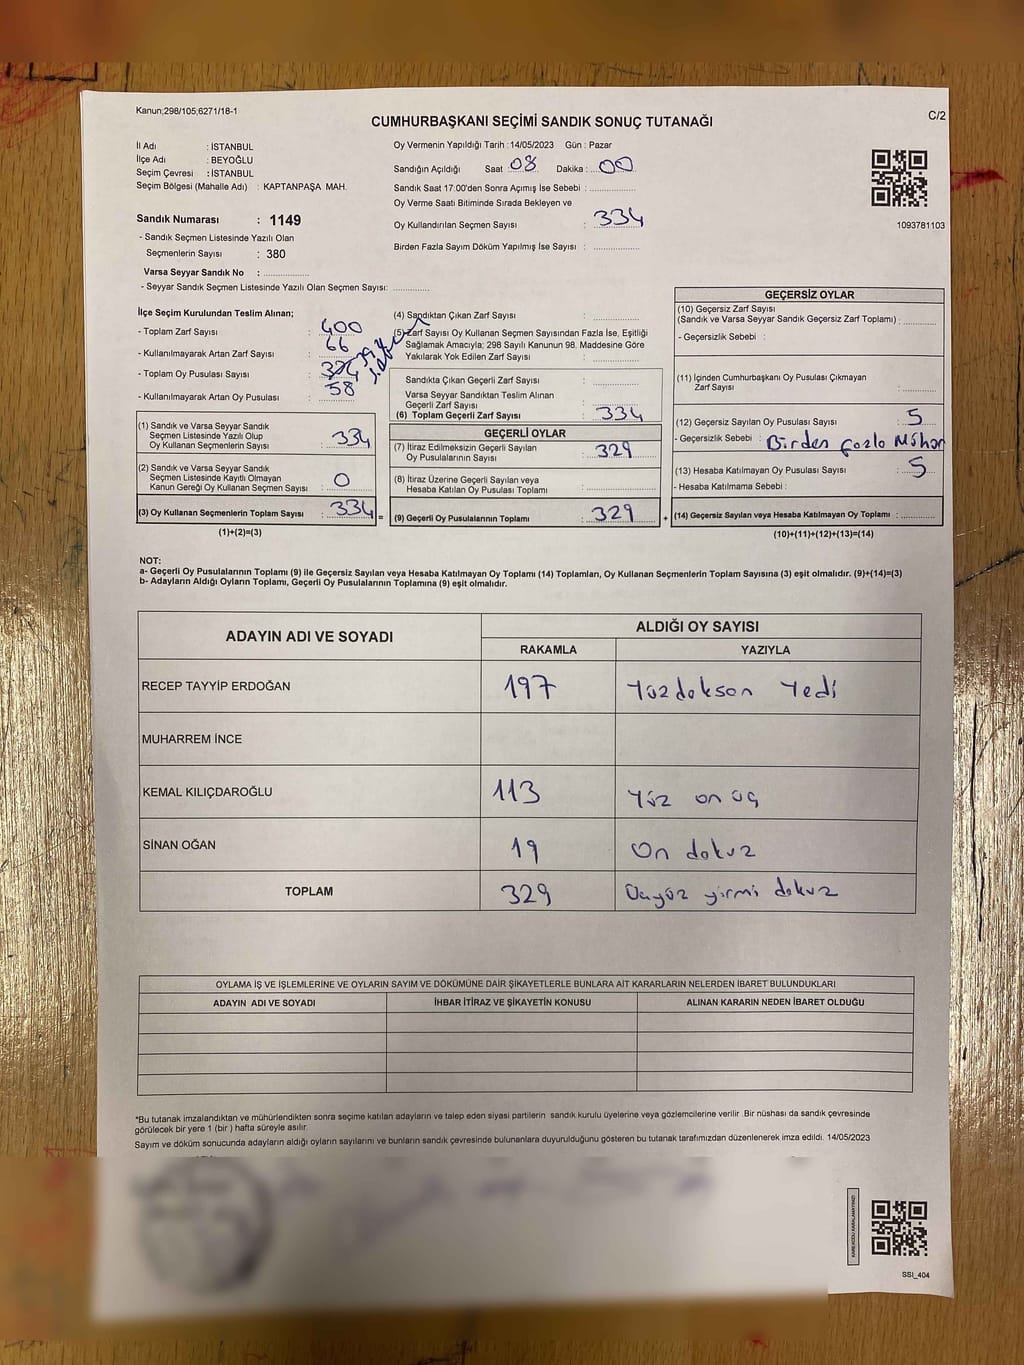 Kanun;298/105;6271/18-1
CUMHURBAŞKANI SEÇİMİ SANDIK SONUÇ TUTANAĞI
C/2
İl Adı : İSTANBUL
İlçe Adı : BEYOĞLU
Seçim Çevresi : İSTANBUL
Seçim Bölgesi (Mahalle Adı) : KAPTANPAŞA MAH.
Sandık Numarası : 1149
- Sandık Seçmen Listesinde Yazılı Olan
Seçmenlerin Sayısı : 380
Varsa Seyyar Sandık No : ..............
- Seyyar Sandık Seçmen Listesinde Yazılı Olan Seçmen Sayısı: ..............
Oy Vermenin Yapıldığı Tarih : 14/05/2023 Gün : Pazar
Sandığın Açıldığı Saat 08 Dakika : 00
Sandık Saat 17:00'den Sonra Açımış İse Sebebi : ..............
Oy Verme Saati Bitiminde Sırada Bekleyen ve
Oy Kullandırılan Seçmen Sayısı : 334
Birden Fazla Sayım Döküm Yapılmış İse Sayısı : ..............
1093781103
İlçe Seçim Kurulundan Teslim Alınan;
- Toplam Zarf Sayısı : 400
- Kullanılmayarak Artan Zarf Sayısı : 66
- Toplam Oy Pusulası Sayısı :
- Kullanılmayarak Artan Oy Pusulası : 58
(1) Sandık ve Varsa Seyyar Sandık
Seçmen Listesinde Yazılı Olup
Oy Kullanan Seçmenlerin Sayısı : 334
(2) Sandık ve Varsa Seyyar Sandık
Seçmen Listesinde Kayıtlı Olmayan
Kanun Gereği Oy Kullanan Seçmen Sayısı : 0
(3) Oy Kullanan Seçmenlerin Toplam Sayısı : 334 =
(1)+(2)=(3)
(4) Sandıktan Çıkan Zarf Sayısı : ..............
(5) Zarf Sayısı Oy Kullanan Seçmen Sayısından Fazla İse, Eşitliği
Sağlamak Amacıyla; 298 Sayılı Kanunun 98. Maddesine Göre
Yakılarak Yok Edilen Zarf Sayısı : ..............
Sandıkta Çıkan Geçerli Zarf Sayısı : ..............
Varsa Seyyar Sandıktan Teslim Alınan
Geçerli Zarf Sayısı : ..............
(6) Toplam Geçerli Zarf Sayısı : 334
GEÇERLİ OYLAR
(7) İtiraz Edilmeksizin Geçerli Sayılan
Oy Pusulalarının Sayısı : 329
(8) İtiraz Üzerine Geçerli Sayılan veya
Hesaba Katılan Oy Pusulası Toplamı : ..............
(9) Geçerli Oy Pusulalarının Toplamı : 329 +
GEÇERSİZ OYLAR
(10) Geçersiz Zarf Sayısı
(Sandık ve Varsa Seyyar Sandık Geçersiz Zarf Toplamı) : ..............
- Geçersizlik Sebebi :
(11) İçinden Cumhurbaşkanı Oy Pusulası Çıkmayan
Zarf Sayısı : ..............
(12) Geçersiz Sayılan Oy Pusulası Sayısı : 5
- Geçersizlik Sebebi : Birden fazla Mühür
(13) Hesaba Katılmayan Oy Pusulası Sayısı : 5
- Hesaba Katılmama Sebebi :
(14) Geçersiz Sayılan veya Hesaba Katılmayan Oy Toplamı : ..............
(10)+(11)+(12)+(13)=(14)
NOT:
a- Geçerli Oy Pusulalarının Toplamı (9) ile Geçersiz Sayılan veya Hesaba Katılmayan Oy Toplamı (14) Toplamları, Oy Kullanan Seçmenlerin Toplam Sayısına (3) eşit olmalıdır. (9)+(14)=(3)
b- Adayların Aldığı Oyların Toplamı, Geçerli Oy Pusulalarının Toplamına (9) eşit olmalıdır.
ADAYIN ADI VE SOYADI
ALDIĞI OY SAYISI
RAKAMLA YAZIYLA
RECEP TAYYİP ERDOĞAN 197 Yüzdokson Yedi
MUHARREM İNCE
KEMAL KILIÇDAROĞLU 113 Yüz on üç
SİNAN OĞAN 19 On dokuz
TOPLAM 329 Üçyüz yirmi dokuz
OYLAMA İŞ VE İŞLEMLERİNE VE OYLARIN SAYIM VE DÖKÜMÜNE DAİR ŞİKAYETLERLE BUNLARA AİT KARARLARIN NELERDEN İBARET BULUNDUKLARI
ADAYIN ADI VE SOYADI İHBAR İTİRAZ VE ŞİKAYETİN KONUSU ALINAN KARARIN NEDEN İBARET OLDUĞU
*Bu tutanak imzalandıktan ve mühürlendikten sonra seçime katılan adayların ve talep eden siyasi partilerin sandık kurulu üyelerine veya gözlemcilerine verilir .Bir nüshası da sandık çevresinde
görülecek bir yere 1 (bir ) hafta süreyle asılır.
Sayım ve döküm sonucunda adayların aldığı oyların sayılarını ve bunların sandık çevresinde bulunanlara duyurulduğunu gösteren bu tutanak tarafımızdan düzenlenerek imza edildi. 14/05/2023
KAREKODU KARALAMAYINIZ!
SSI_404